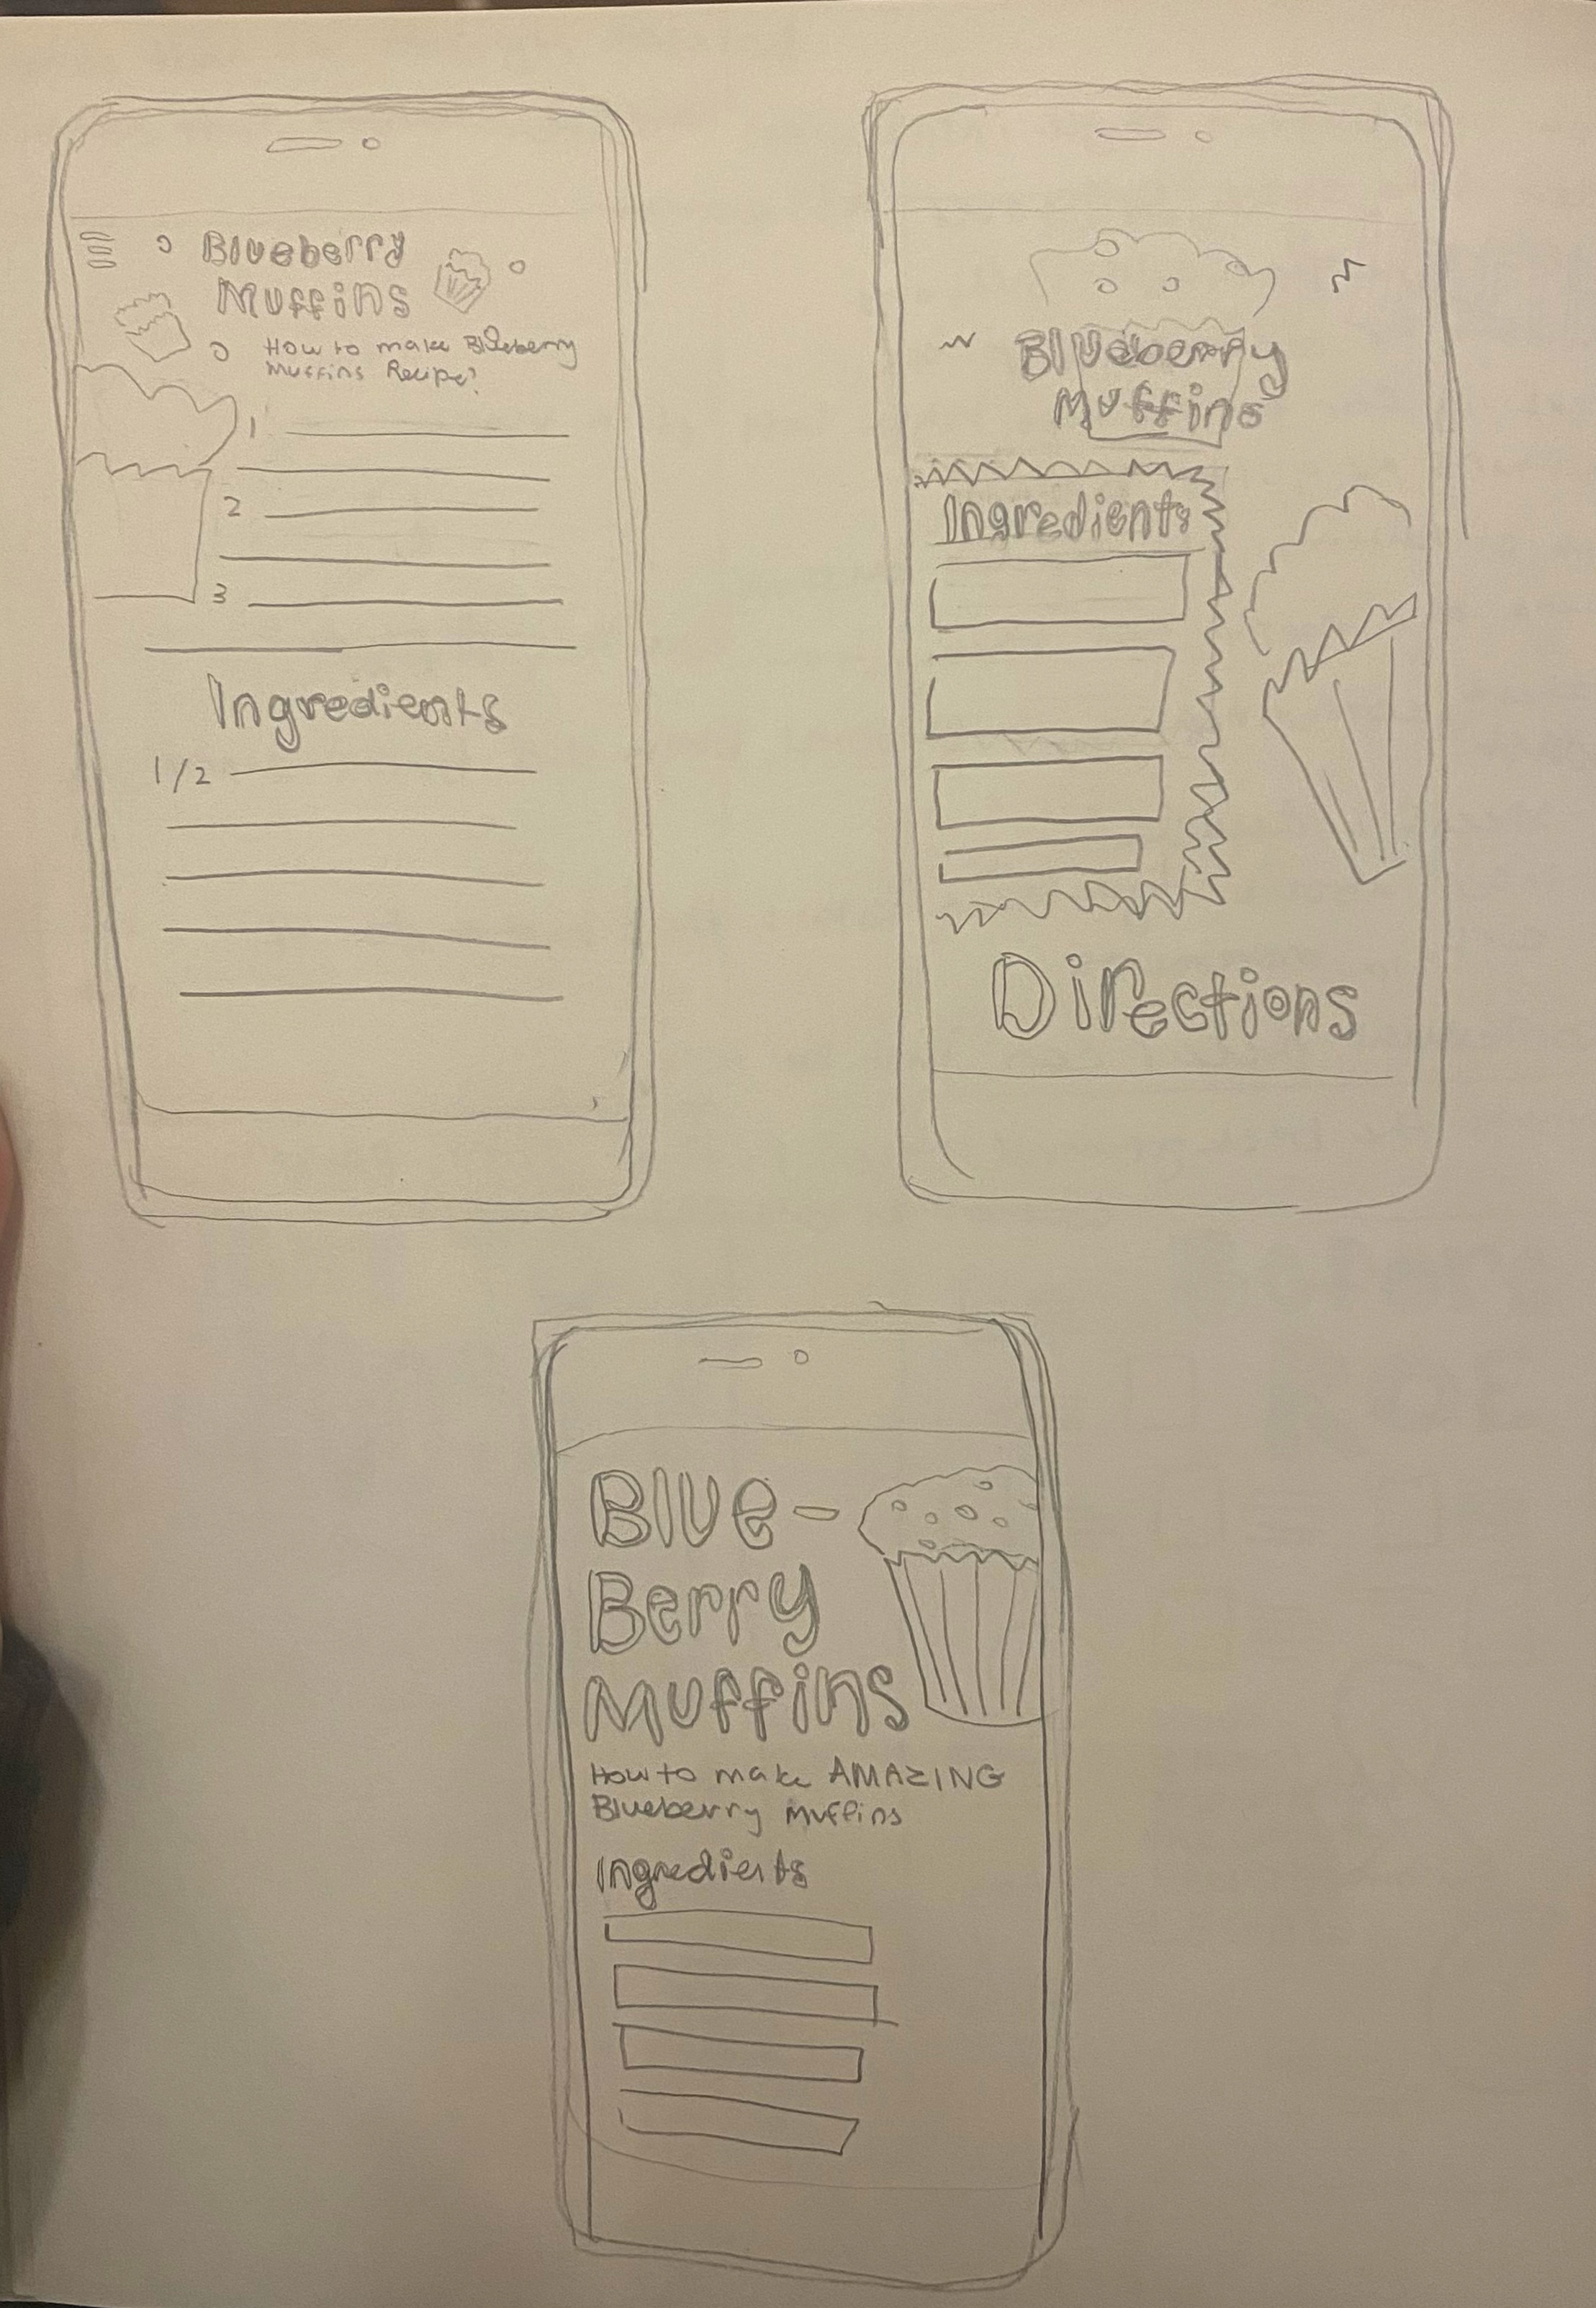 Blueberry
Muffins
How to make Blueberry
Muffins Recipe?
1
2
3
Ingredients
1/2
Blueberry
Muffins
Ingredients
Directions
Blue-
Berry
Muffins
How to make AMAZING
Blueberry Muffins
Ingredients